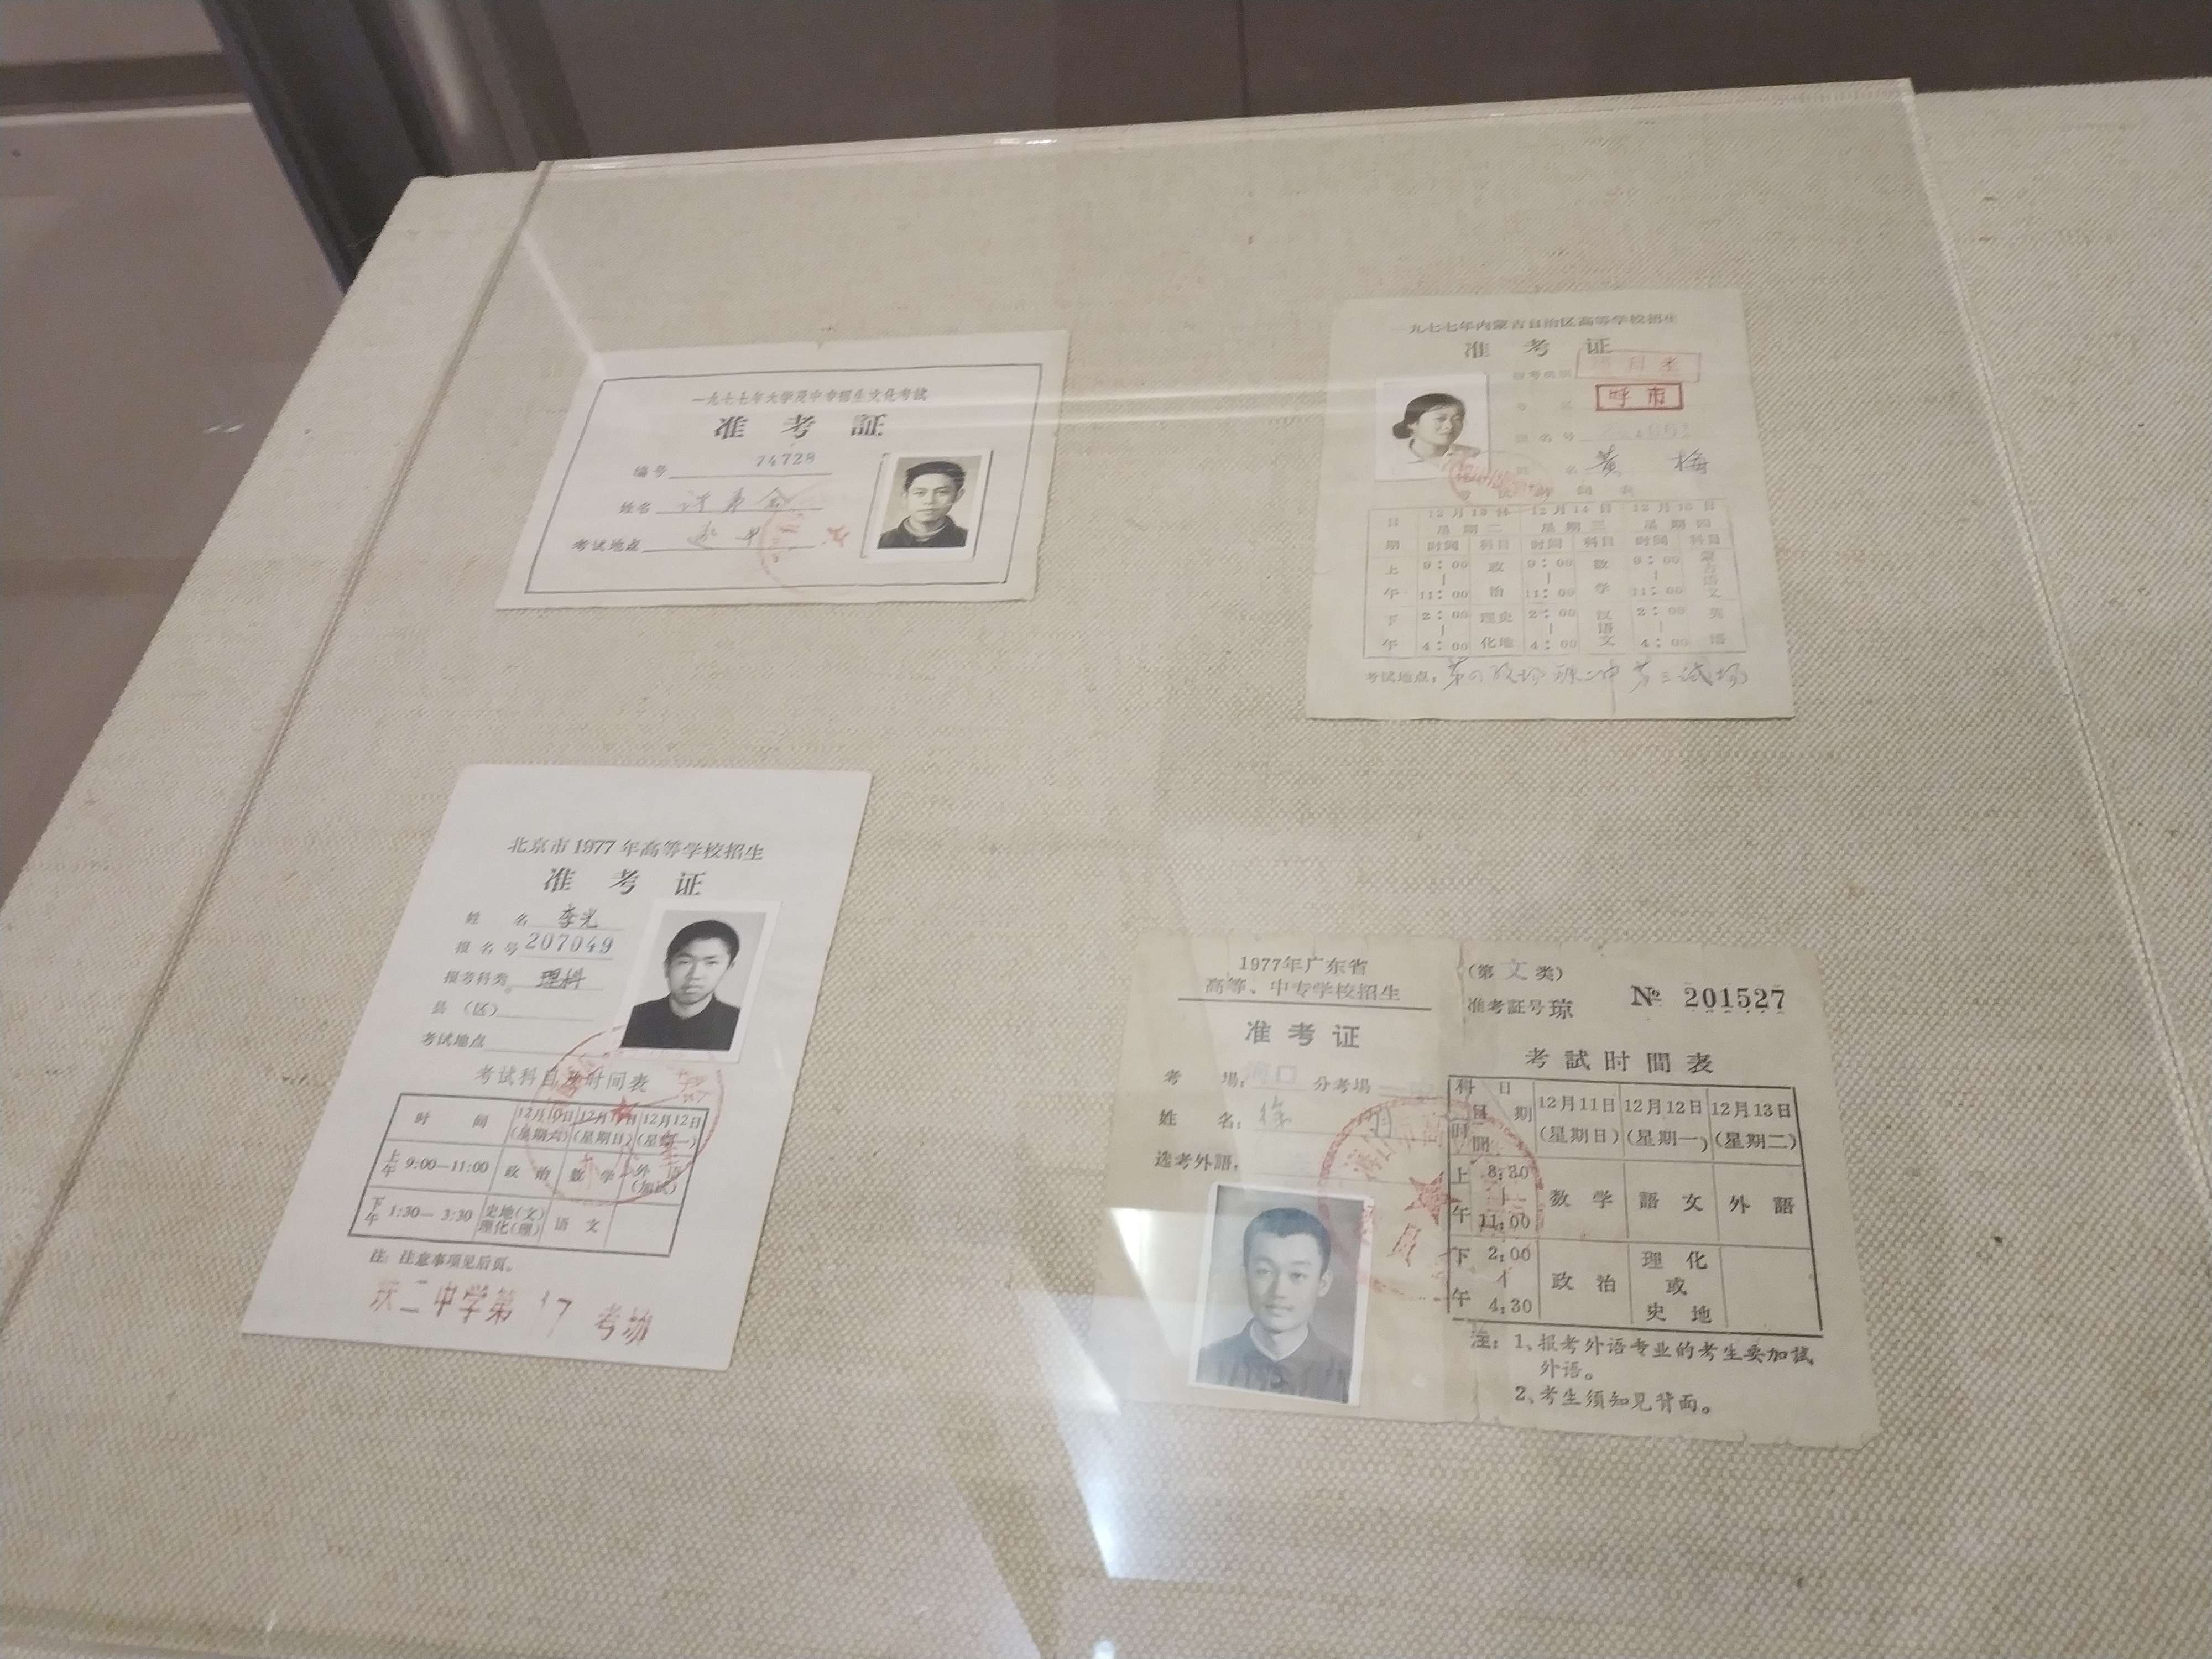 一九七七年大学及中专招生文化考试
准考証
编号 74728
姓名
考试地点
九七七年内蒙古自治区高等学校招生
准考证
报考类别
考区 呼市
报名号
姓名 黄梅
考试时间表
日 12月13日 12月14日 12月15日
星期二 星期三 星期四
期 时间 科目 时间 科目 时间 科目
上午 9:00-11:00 政治 9:00-11:00 数学 9:00-11:00 蒙古语文
下午 2:00-4:00 理化 史地 2:00-4:00 汉语文 2:00-4:00 英语
考试地点:
北京市1977年高等学校招生
准考证
姓名 李光
报名号 207049
报考科类 理科
县(区)
考试地点
考试科目及时间表
时间 12月10日(星期六) 12月11日(星期日) 12月12日(星期一)
上午 9:00—11:00 政治 数学 外语(加试)
下午 1:30—3:30 史地(文) 理化(理) 语文
注:注意事项见后页。
二中学第17考场
1977年广东省
高等、中专学校招生
准考证
考場: 分考場
姓名: 徐
选考外語:
(第文类)
准考証号琼 № 201527
考試时間表
科目 日期 时間 12月11日(星期日) 12月12日(星期一) 12月13日(星期二)
上午 8:30-11:00 数学 語文 外語
下午 2:00-4:30 政治 理化或史地
注:1、报考外语专业的考生要加試
外语。
2、考生须知见背面。